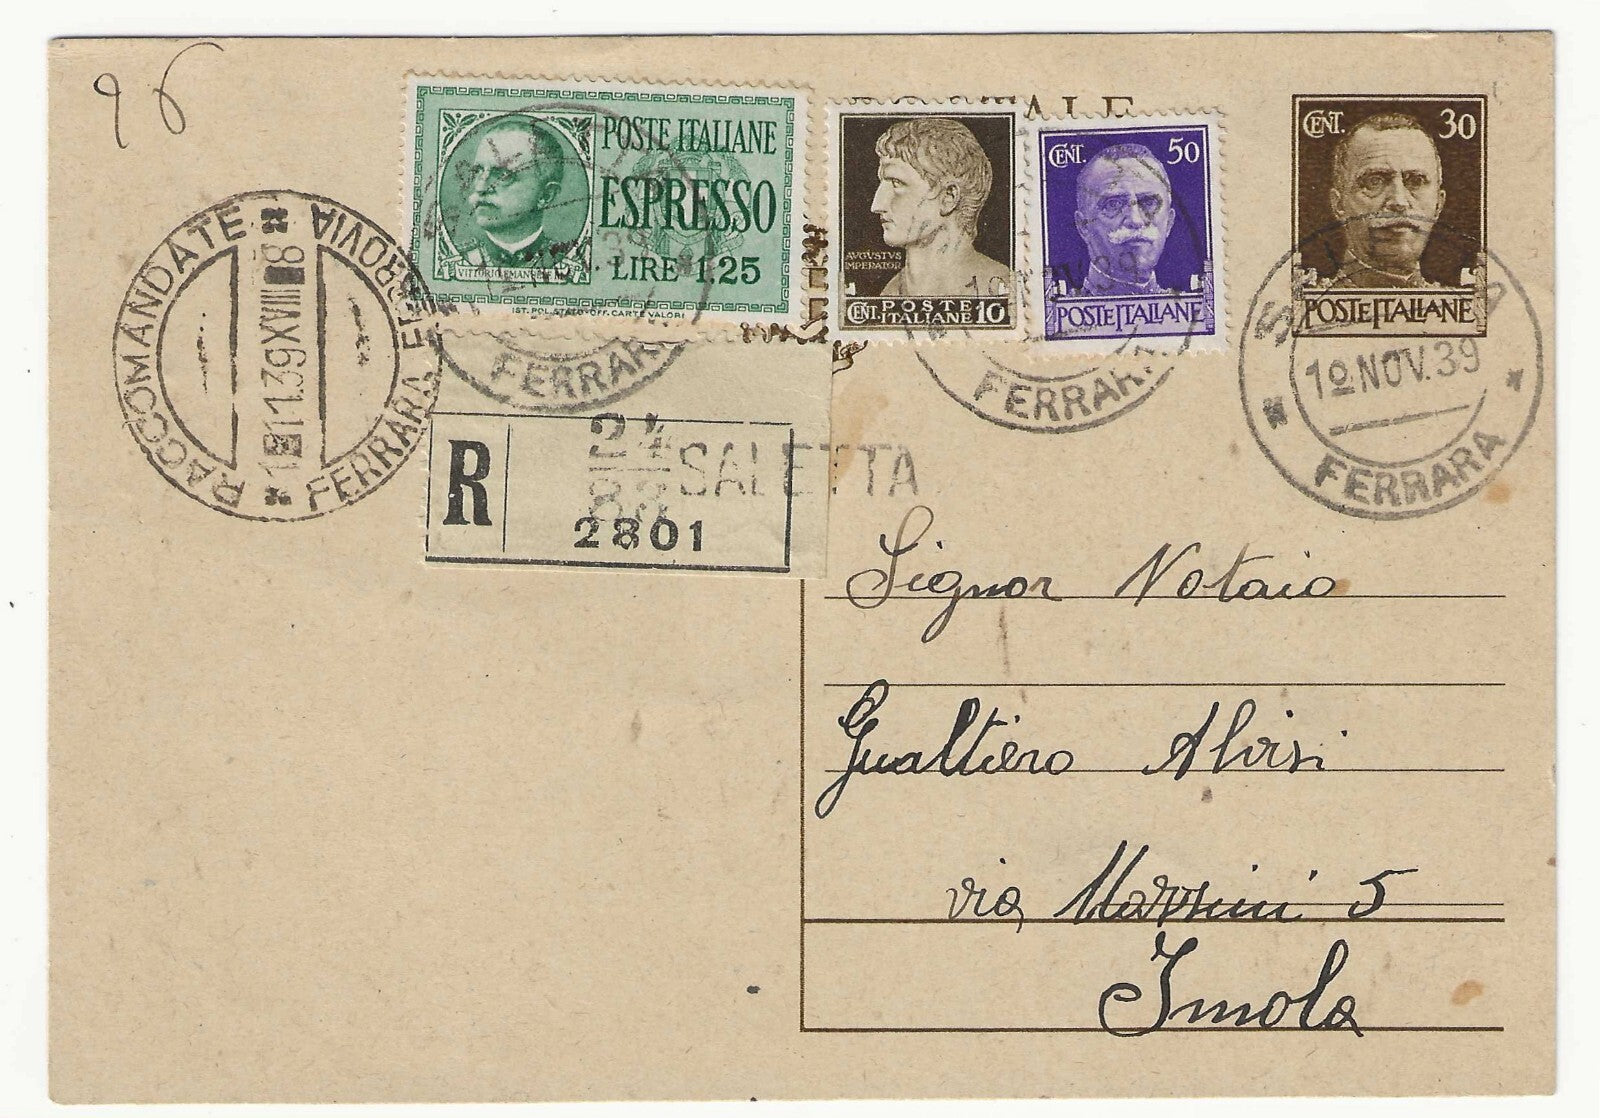 96
POSTE ITALIANE
ESPRESSO
LIRE 1,25
VITTORIO EMANUELE
IST. POL. STATO-OFF. CARTE VALORI
AVGVSTVS
IMPERATOR
POSTE
CENT. ITALIANE 10
CENT. 50
POSTE ITALIANE
ALE
CENT. 30
POSTE ITALIANE
RACCOMANDATE
FERRARA FERROVIA
FERRARA
NOV.39
FERRARA
SALETTA
1º NOV.39
FERRARA
R
24
SALETTA
2801
Signor Notaio
Gualtiero Alvisi
via Marsini 5
Imola